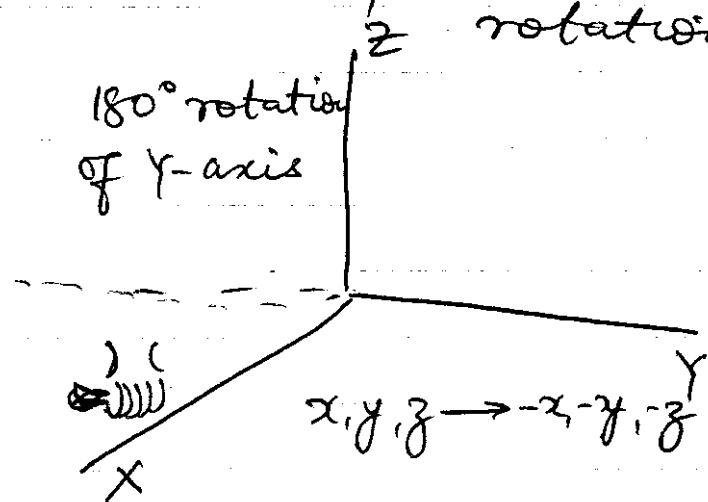 Z rotatio
180° rotation
of Y-axis
Y
x, y, z → -x, -y, -z
X